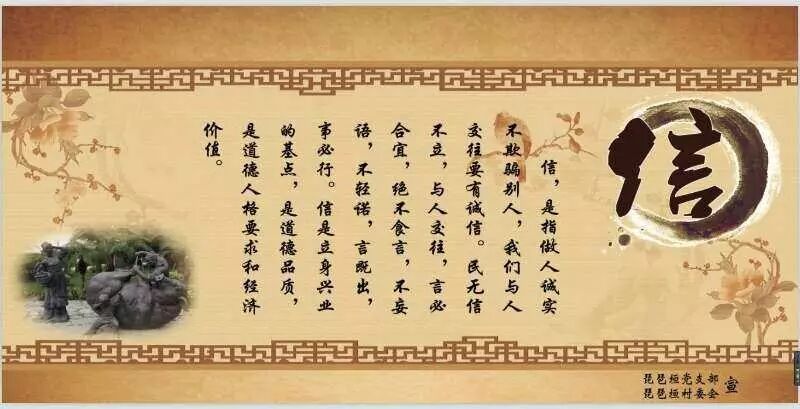 信
信，是指做人诚实
不欺骗别人，我们与人
交往要有诚信。民无信
不立，与人交往，言必
合宜，绝不食言，不妄
语，不轻诺，言既出，
事必行。信是立身兴业
的基点，是道德品质，
是道德人格要求和经济
价值。
琵琶桓党支部
琵琶桓村委会
宣